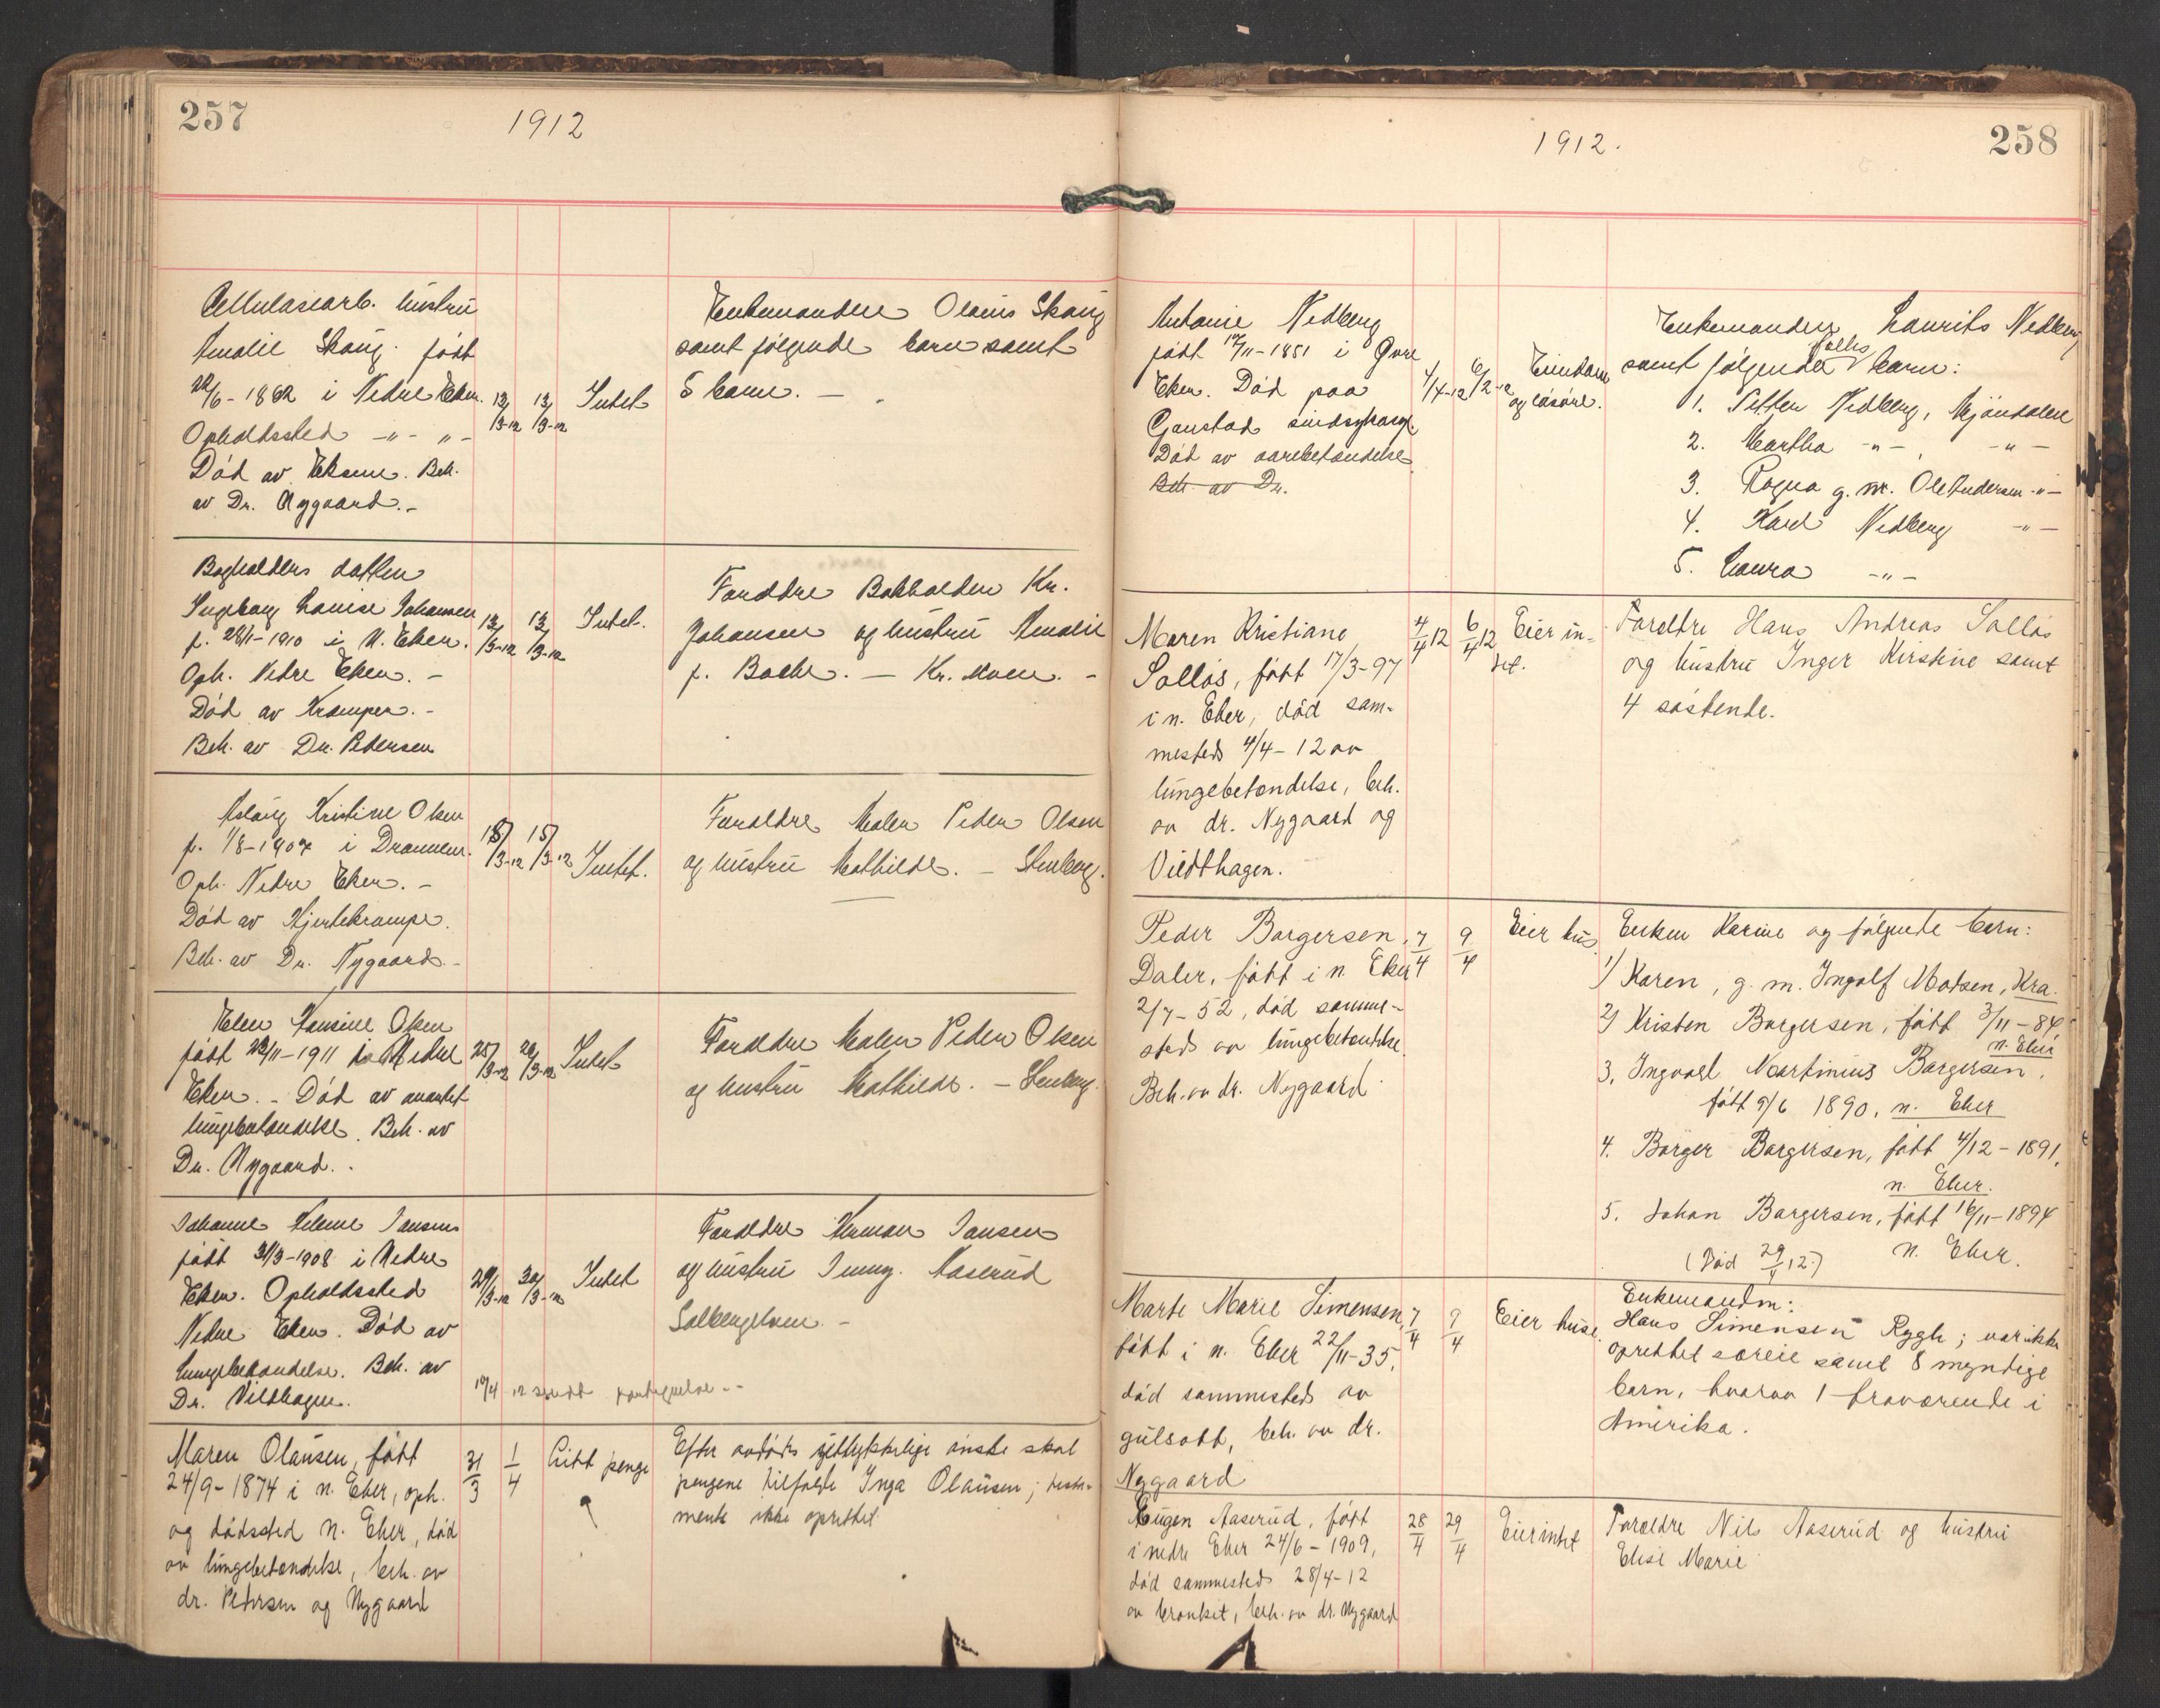 257
1912
Cellulosearb. hustru
Amalie Skaug. født
22/6-1862 i Nedre Eker.
Opholdssted -"- "-
Død av Eksem. Beh.
av Dr. Nygaard.-
13/3-12
13/3-12
Intet
Enkemanden Olaus Skaug
samt følgende barn samt
5 barn. -
Bogholders datter
Ingeborg Louise Johansen
f. 28/1-1910 i N. Eker.
Oph. Nedre Eker. -
Død av Kramper. -
Beh. av Dr. Pedersen
13/3-12
13/3-12
Intet.
Forældre Bokholder Kr.
Johansen og hustru Amalie
f. Bache. - Kr. Moen. -
Aslaug Kristine Olsen
f. 1/8-1907 i Drammen.
Oph. Nedre Eker. -
Død av Hjertekrampe.
Beh. av Dr. Nygaard. -
15/3-12
15/3-12
Intet.
Forældre Maler Peder Olsen
og hustru Mathilde. - Stenberg.
Ellen Hansine Olsen
født 23/11-1911 i Nedre
Eker. - Død av
lungebetændelse. Beh. av
Dr. Nygaard. .
25/3-12
26/3-12
Intet
Forældre Maler Peder Olsen
og hustru Mathilde. - Stenberg.
Johanne Helene Jansen
født 31/3-1908 i Nedre
Eker. Opholdssted
Nedre Eker. Død av
lungebetændelse. Beh. av
Dr. Vildthagen.
29/3-12
30/3-12
Intet
Forældre Herman Jansen
og hustru Jenny. Aaserud
Solbergelven. -
Maren Olausen, født
24/9-1874 i n. Eker, oph.
og dødssted n. Eker, død
av lungebetændelse, beh. av
dr. Petersen og Nygaard
31/3
1/4
Litt penge
Efter avdødes ønske skal
pengene tilfalde Inga Olausen; testa-
mente ikke oprettet
258
1912.
Antonie Nedberg
født 12/11-1851 i Øvre
Eker. Død paa
Gaustad sindsykeasyl.
Død av aarebetændelse
Beh. av Dr.
4/4-12
6/2-12
Eiendom
og løsøre.
Enkemanden Laurits Nedberg
samt følgende fælles barn:
1. Petter Nedberg, Mjøndalen
2. Martha -"-, -"-
3. Ragna g. m. Ole Andersen -"-
4. Karl Nedberg -"-
5. Laura -"-
Maren Kristiane
Solløs, født 17/3-97
i n. Eker, død sam-
mesteds 4/4-12 av
lungebetændelse, beh.
av dr. Nygaard og
Vildthagen.
4/4 12
6/4 12
Eier in-
tet.
Forældre Hans Andreas Solløs
og hustru Inger Kirstine samt
4 søskende.
Peder Borgersen
Daler, født i n Eker
2/7-52, død samme-
steds av lungebetændelse.
Beh. av dr. Nygaard.
7/4
9/4
Eier hus
Enken Karine og følgende barn:
1) Karen, g. m. Ingolf Madsen, Kra.
2) Kristen Borgersen, født 3/11-84
n. Eker
3, Ingvald Martinius Borgersen,
født 9/6 1890, n. Eker
4. Borger Borgersen, født 4/12-1891,
n. Eker.
5. Johan Borgersen, født 16/11-1894
(Død 29/4 12) n. Eker.
Marte Marie Simensen,
født i n. Eker 22/11-35,
død sammesteds av
gulsott, beh. av dr.
Nygaard
7/4
9/4
Eier huse.
Enkemanden:
Hans Simensen Rygh; var ikke
oprettet særeie samt 8 myndige
barn, hvorav 1 fraværende i
Amerika.
Eugen Aaserud, født
i nedre Eker 24/6-1909,
død sammesteds 28/4-12
av bronkit, beh. av dr. Nygaard
28/4
29/4
Eier intet
Forældre Nils Aaserud og hustru
Elise Marie